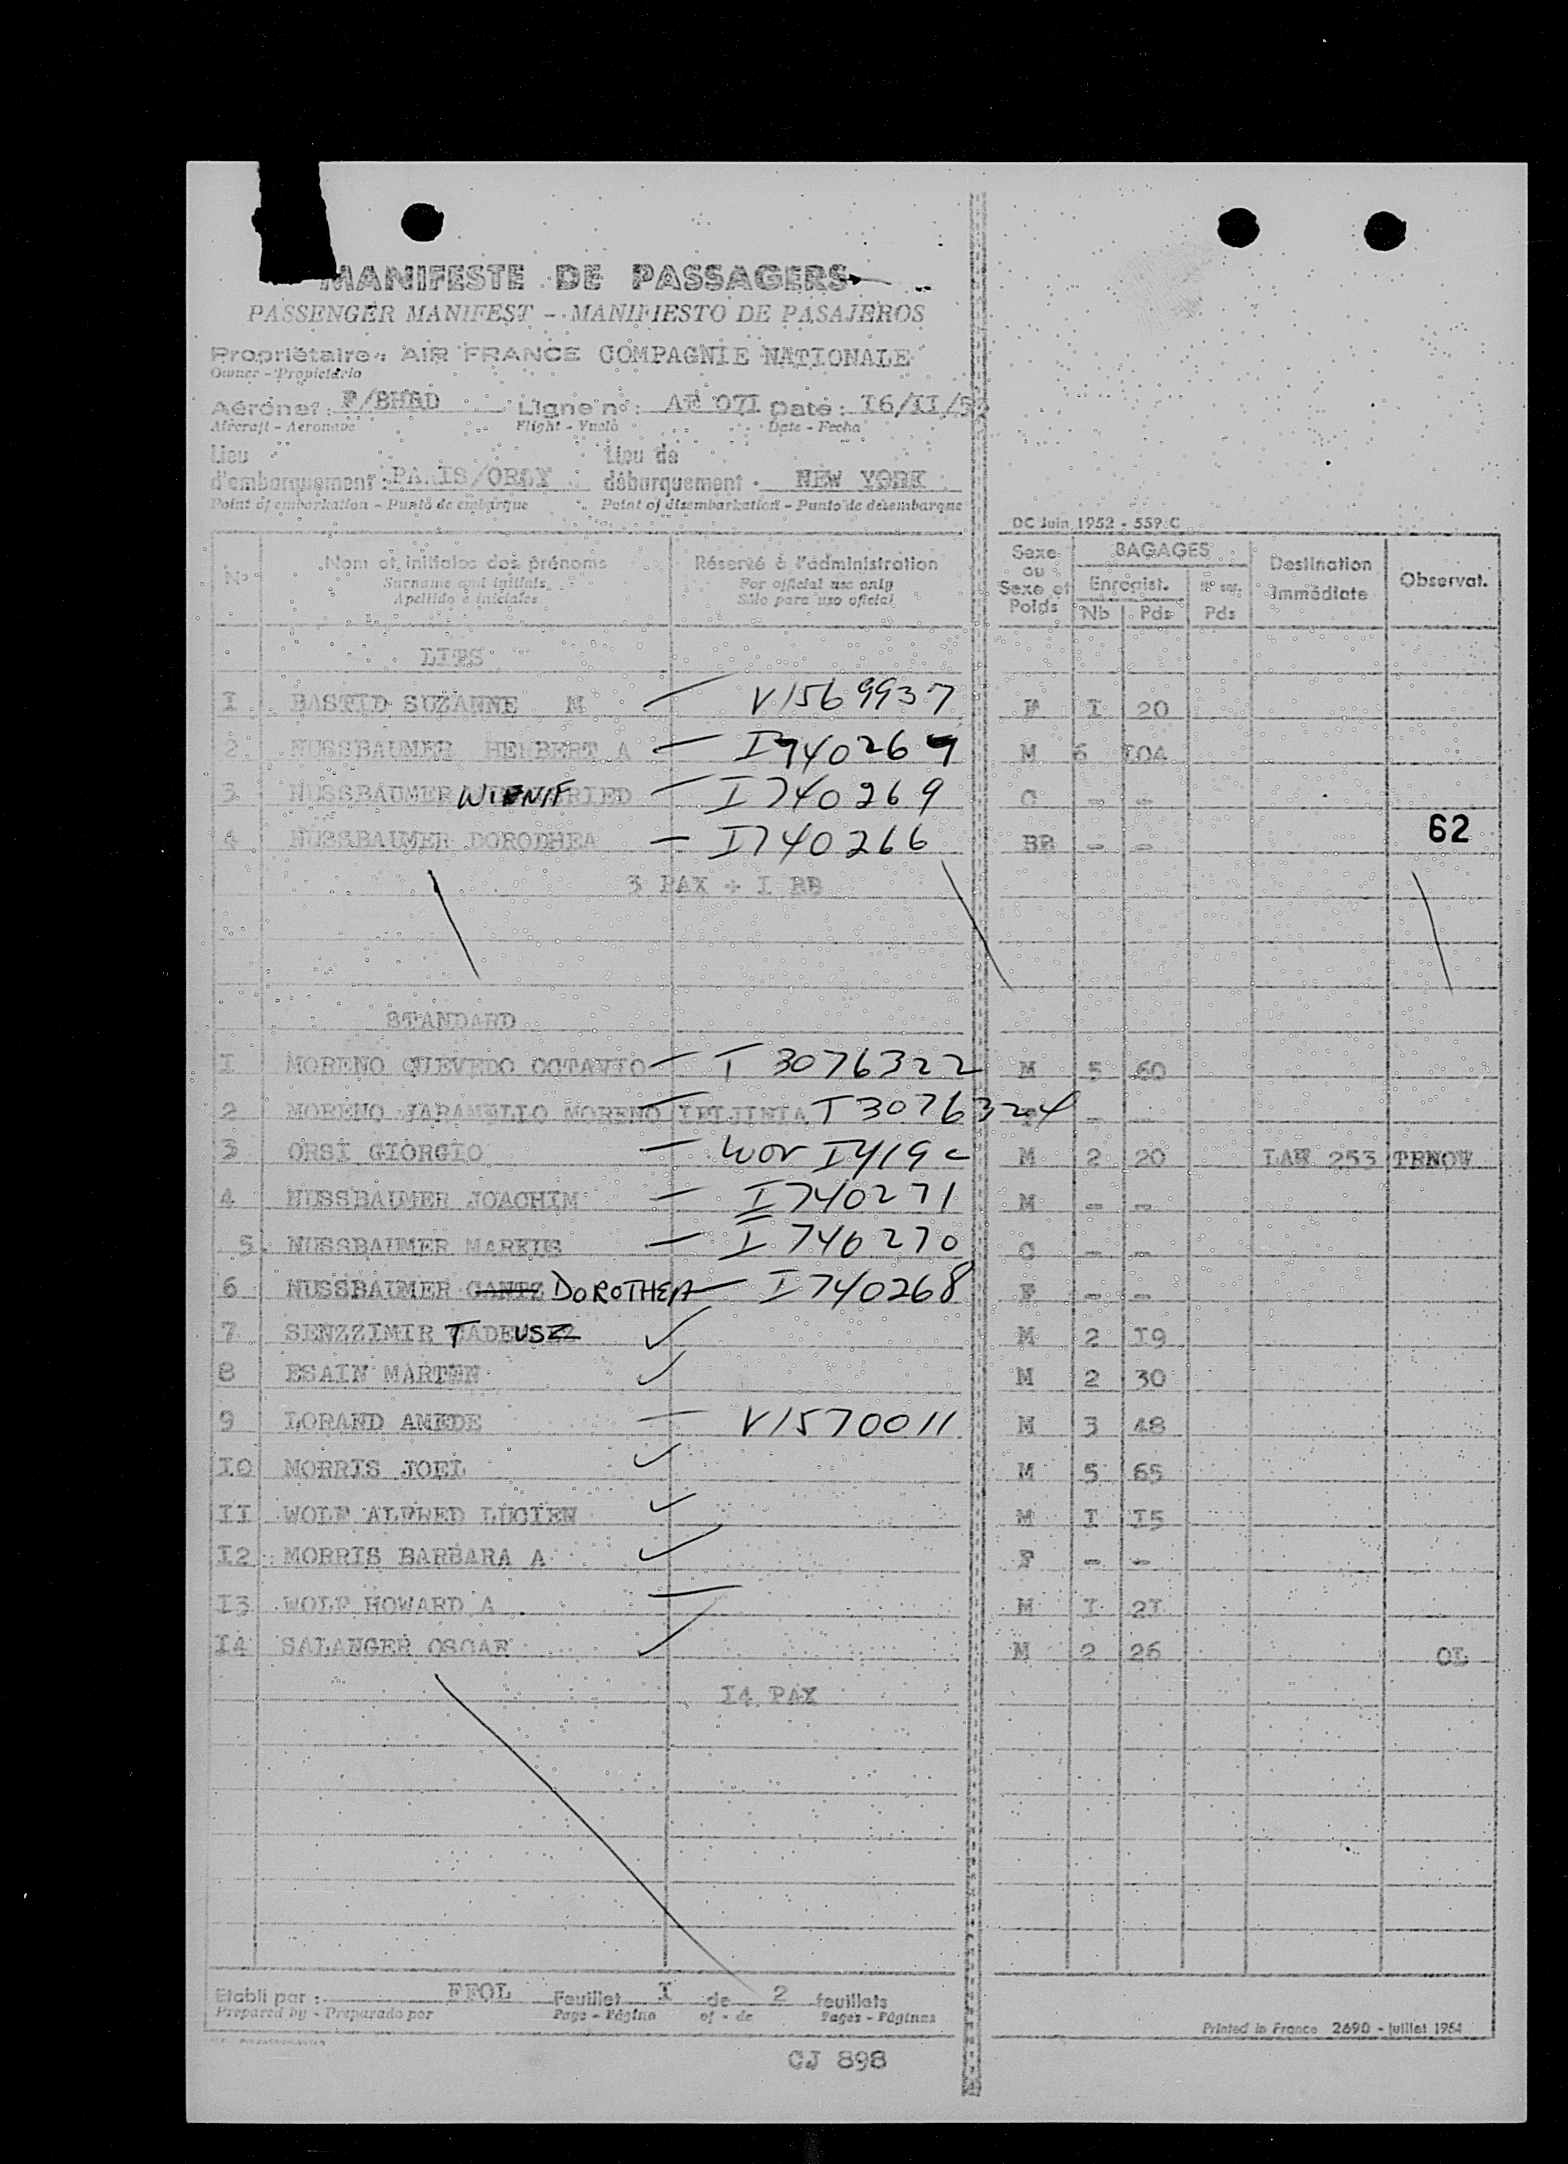 MANIFESTE DE PASSAGERS
PASSENGER MANIFEST - MANIFIESTO DE PASAJEROS
Propriétaire : AIR FRANCE COMPAGNIE NATIONALE
Owner - Propietario
Aéronef : F/BHBD Ligne n° : AF 071 Date : I6/II/5
Aircraft - Aeronave Flight - Vuelo Date - Fecha
Lieu d'embarquement : PARIS/ORLY Lieu de débarquement : NEW YORK
Point of embarkation - Punto de embarque Point of disembarkation - Punto de desembarque
DC Juin 1952 - 559.C
N° Nom et initiales des prénoms Réservé à l'administration Sexe ou Sexe et Poids BAGAGES Destination Immédiate Observat.
Surname and initials For official use only Enregist. Pds
Apellido e iniciales Sólo para uso oficial Nb Pds
LITS
I BASTID SUZANNE M — V1569937 F I 20
2 NUSSBAUMER HERBERT A — I740267 M 6 I04
3 NUSSBAUMER WINNIFRIED — I740269 C - -
4 NUSSBAUMER DORODHEA — I740266 BB - -
62
3 PAX + I BB
STANDARD
I MORENO QUEVEDO OCTAVIO — T 3076322 M 5 60
2 MORENO JARAMELLO MORENO T3076324 F - -
3 ORSI GIORGIO — wor I419c M 2 20 LAW 253 TRNOW
4 NUSSBAUMER JOACHIM — I740271 M - -
5 NUSSBAUMER MARKUS — I 740270 C - -
6 NUSSBAUMER GANTZ DOROTHEA — I740268 F - -
7 SENZZIMIR TADEUSZ ✓ M 2 I9
8 ESAIN MARTEN ✓ M 2 30
9 LORAND AMEDE — V1570011 M 3 48
IO MORRIS JOEL ✓ M 5 65
II WOLF ALFRED LUCIEN ✓ M I I5
I2 MORRIS BARBARA A ✓ F - -
I3 WOLF HOWARD A — M I 2I
I4 SALANGER OSCAR ✓ M 2 26 OL
I4 PAX
Etabli par : FFOL Feuillet I de 2 feuillets
Prepared by - Preparado por Page - Página of - de Pages - Páginas
Printed in France 2690 - juillet 1954
CJ 898